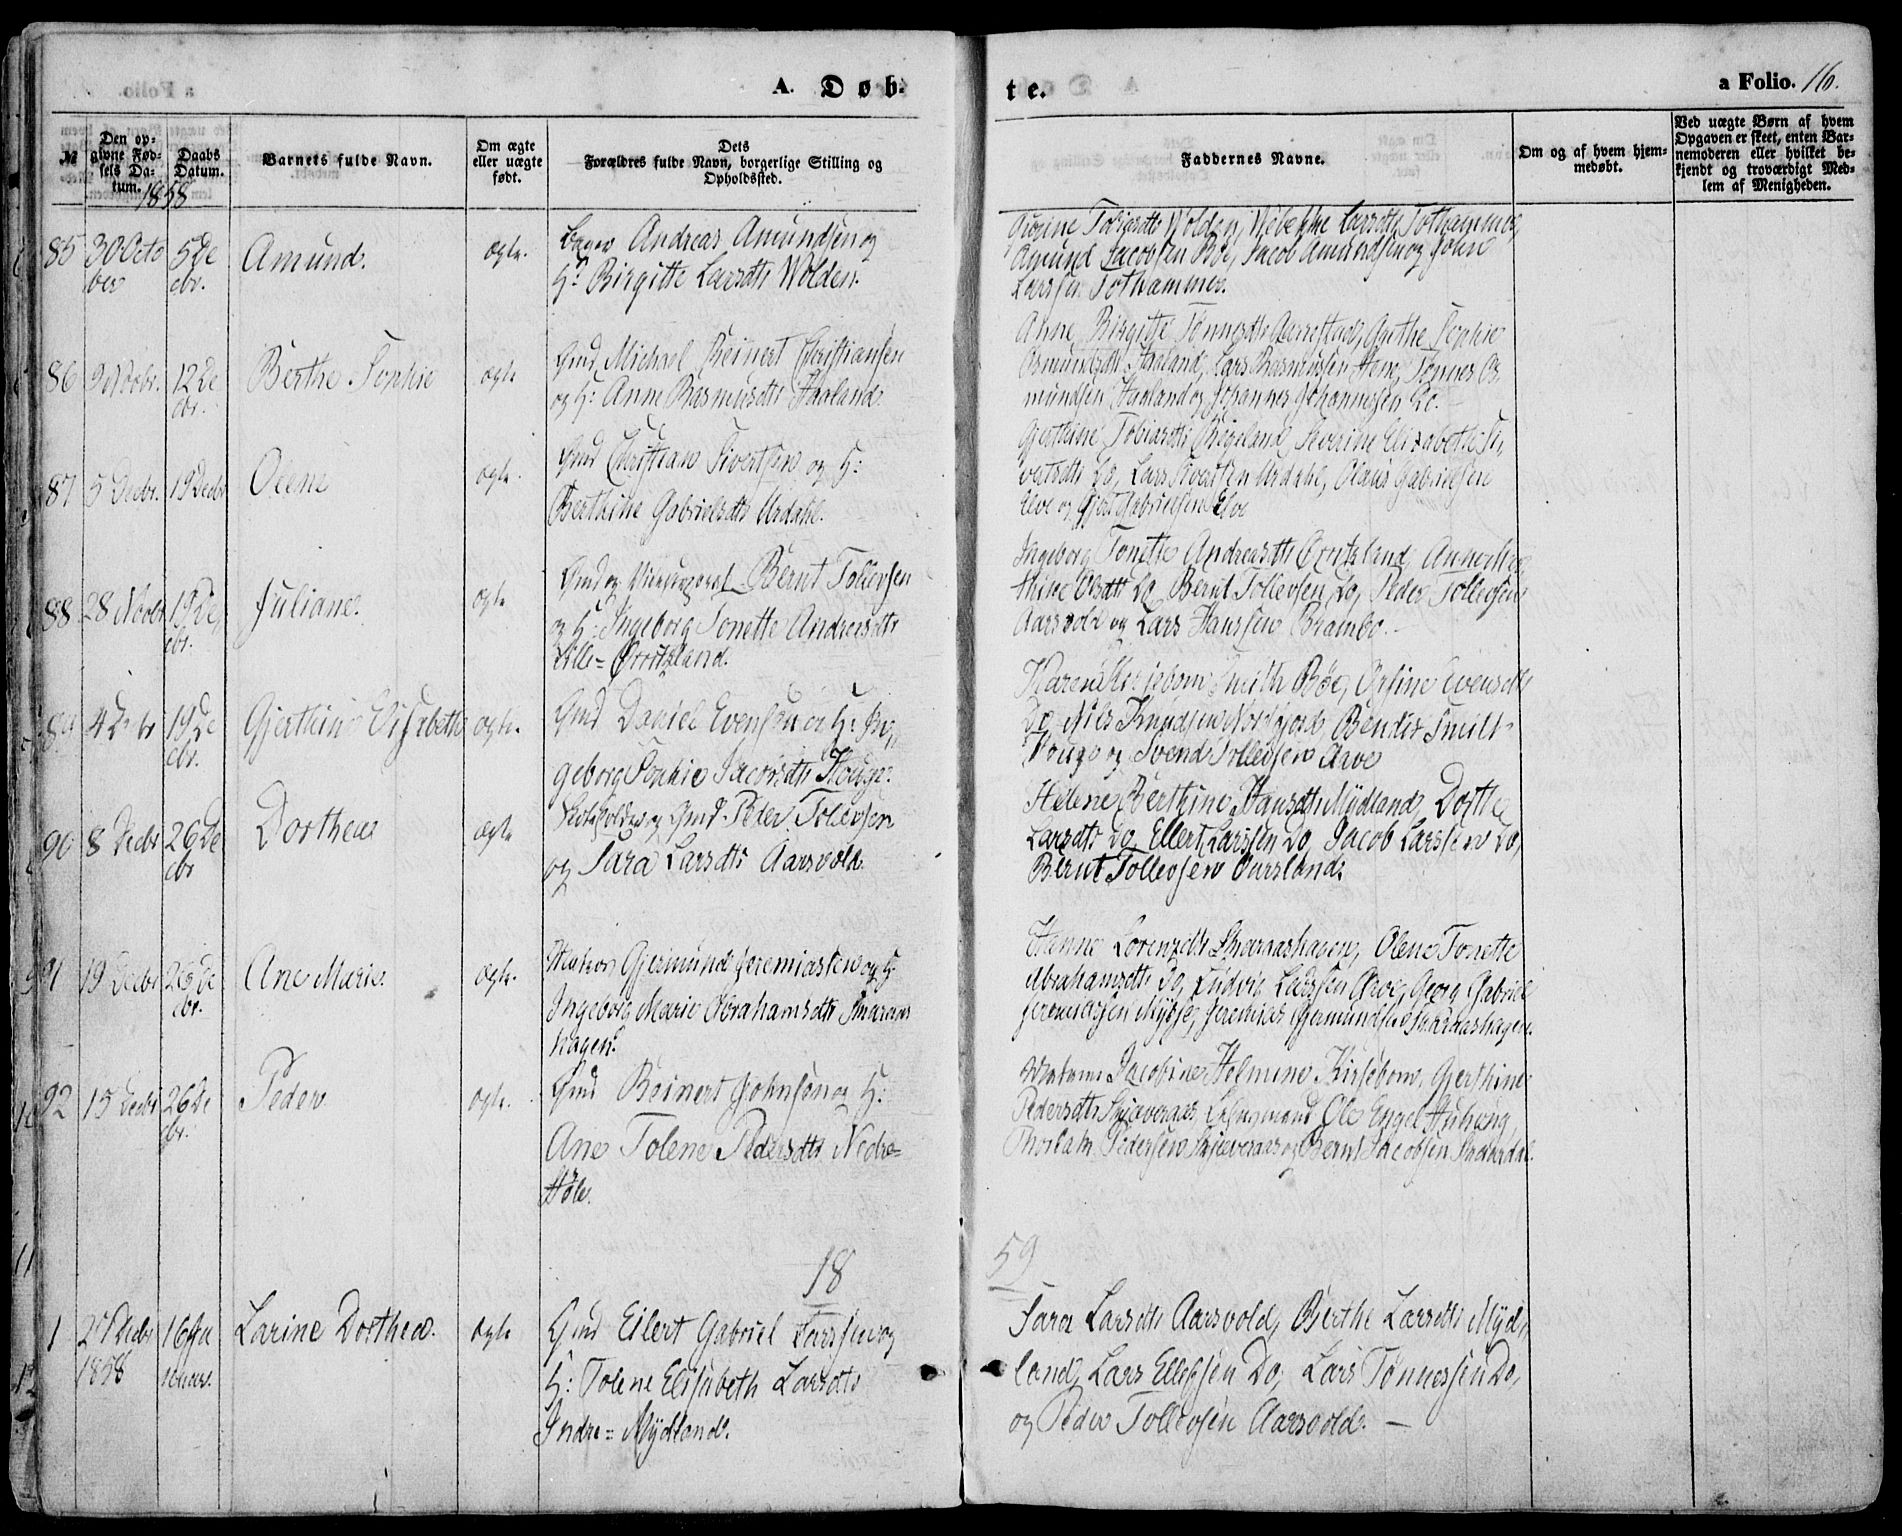 A. Døb-
te.
a Folio. 16.
№
Den op-
givne Fød-
sels Da-
tum.
1858
Daabs
Datum.
Barnets fulde Navn.
Om ægte
eller uægte
født.
Dets
Forældres fulde Navn, borgerlige Stilling og
Opholdssted.
Faddernes Navne.
Om og af hvem hjem-
medøbt.
Ved uægte Børn af hvem
Opgaven er skeet, enten Bar-
nemoderen eller hvilket be-
kjendt og troværdigt Med-
lem af Menigheden.
85 30 Octo 5 De Amund. ægte. Andreas Amundsen og
ber cbr. H: Birgitte Larsdtr Wolden.
Tobiasdtr Wolden, Larsdtr Tothammer,
Amund Jacobsen Bøe, Jacob Amundsen og John
Larssen Tothammer.
86 9 Novbr. 12 De Berthe Sophie ægte Gmd Michael Reinert Christiansen
cbr. og H: Anne Rasmusdtr Haaland.
Anne Birgitte Tønnesdtr Sophie
Asmundsdtr Haaland, Lars Rasmussen Tønnes Os-
mundsen Haaland og Johannes Johannessen Do.
87 5 Decbr. 19 Decbr Olene ægte. Gmd Christian Sivertsen og H:
Berthine Gabrielsdtr Urdahl.
Gjerthine Tobiasdtr Severine Elisabeth Si-
vertsdtr Do, Lars Sivertsen Urdahl, Olaus Gabrielsen
og Gjert Gabrielsen
88 28 Novbr 19 De Juliane. ægte Gmd og Bernt Tollevsen
cbr. og H: Ingeborg Tonette Andreasdtr
Lille= Ørritsland.
Ingeborg Tonette Andreasdtr Ørritsland,
thine Olsdtr Do Bernt Tollevsen Do, Peder Tollevsen
Aarsvold og Lars Hanssen Brambo.
89 4 Decbr 19 De Gjerthine Elisabeth ægte. Gmd Daniel Evensen og H: In-
cbr. geborg Sophie Jacobsdtr Houge.
Karen Kirsebom Smith Bøe, Evensdtr
Do Nils Knudsen Nordfjord, Bendix Smith
Houge og Svend Tollevsen Arve
90 8 Decbr 26 De Dorthea ægte og Gmd Peder Tollevsen
cbr og Sara Larsdtr Aarsvold.
Helene Berthine Hansdtr Mydland, Dorthe
Larsdtr Do, Ellert Larssen Do, Jacob Larssen Do,
Bernt Tollevsen
91 19 Decbr 26 De Ane Marie. ægte. Gjermund Jeremiassen og H:
cbr. Ingeborg Marie Abrahamsdtr Skaraas
hagen.
Hanne Lorenzdtr Skaraashagen, Olene Tonette
Abrahamsdtr Do, Ludvig Larssen Arve, Georg Gabriel
Jeremiassen Jeremias Gjermundsen Skaraashagen.
92 15 Decbr 26 De Peder ægte. Gmd Reinert Johnsen og H:
cbr. Ane Tolene Pedersdtr Nedre=
Høle.
Jacobine Helmine Kirsebom, Gjerthine
Pedersdtr Skjæveraas, Lehnsmand Ole Engel Auhoug,
Pedersen Skjæveraas og Bernt Jacobsen
18 59
1 27 Decbr 16 Ja Larine Dorthea. ægte Gmd Eilert Gabriel Larssen og
1858 nuar. H: Tolene Elisabeth Larsdtr
Indre= Mydland.
Sara Larsdtr Aarsvold, Berthe Larsdtr Myd-
land, Lars Ellefsen Do, Lars Tønnessen Do,
og Peder Tollevsen Aarsvold. —